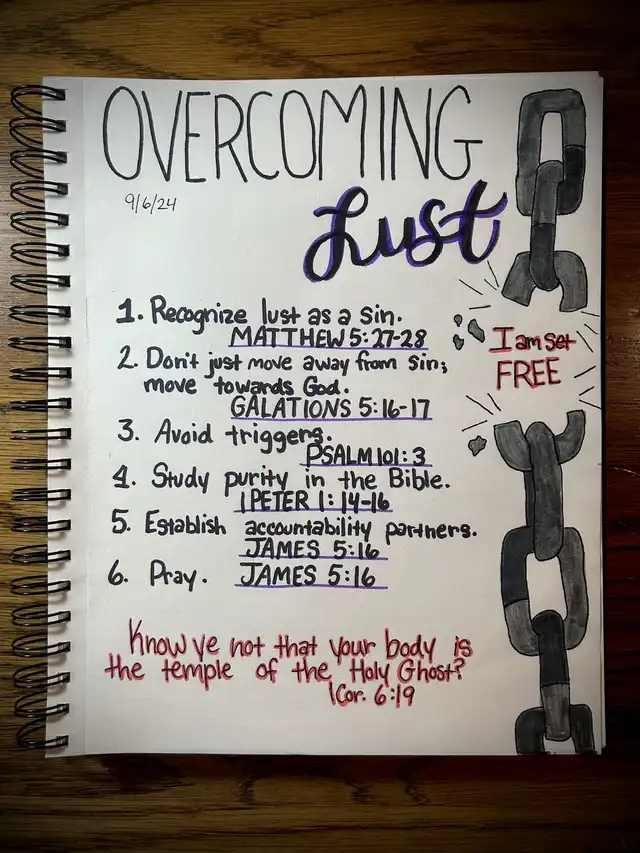 OVERCOMING
9/6/24
Lust
1. Recognize lust as a sin.
MATTHEW 5:27-28
2. Don't just move away from sin;
move towards God.
GALATIONS 5:16-17
3. Avoid triggers.
PSALM 101:3
4. Study purity in the Bible.
1 PETER 1:14-16
5. Establish accountability partners.
JAMES 5:16
6. Pray. JAMES 5:16
I am set
FREE
Know ye not that your body is
the temple of the Holy Ghost?
1 Cor. 6:19